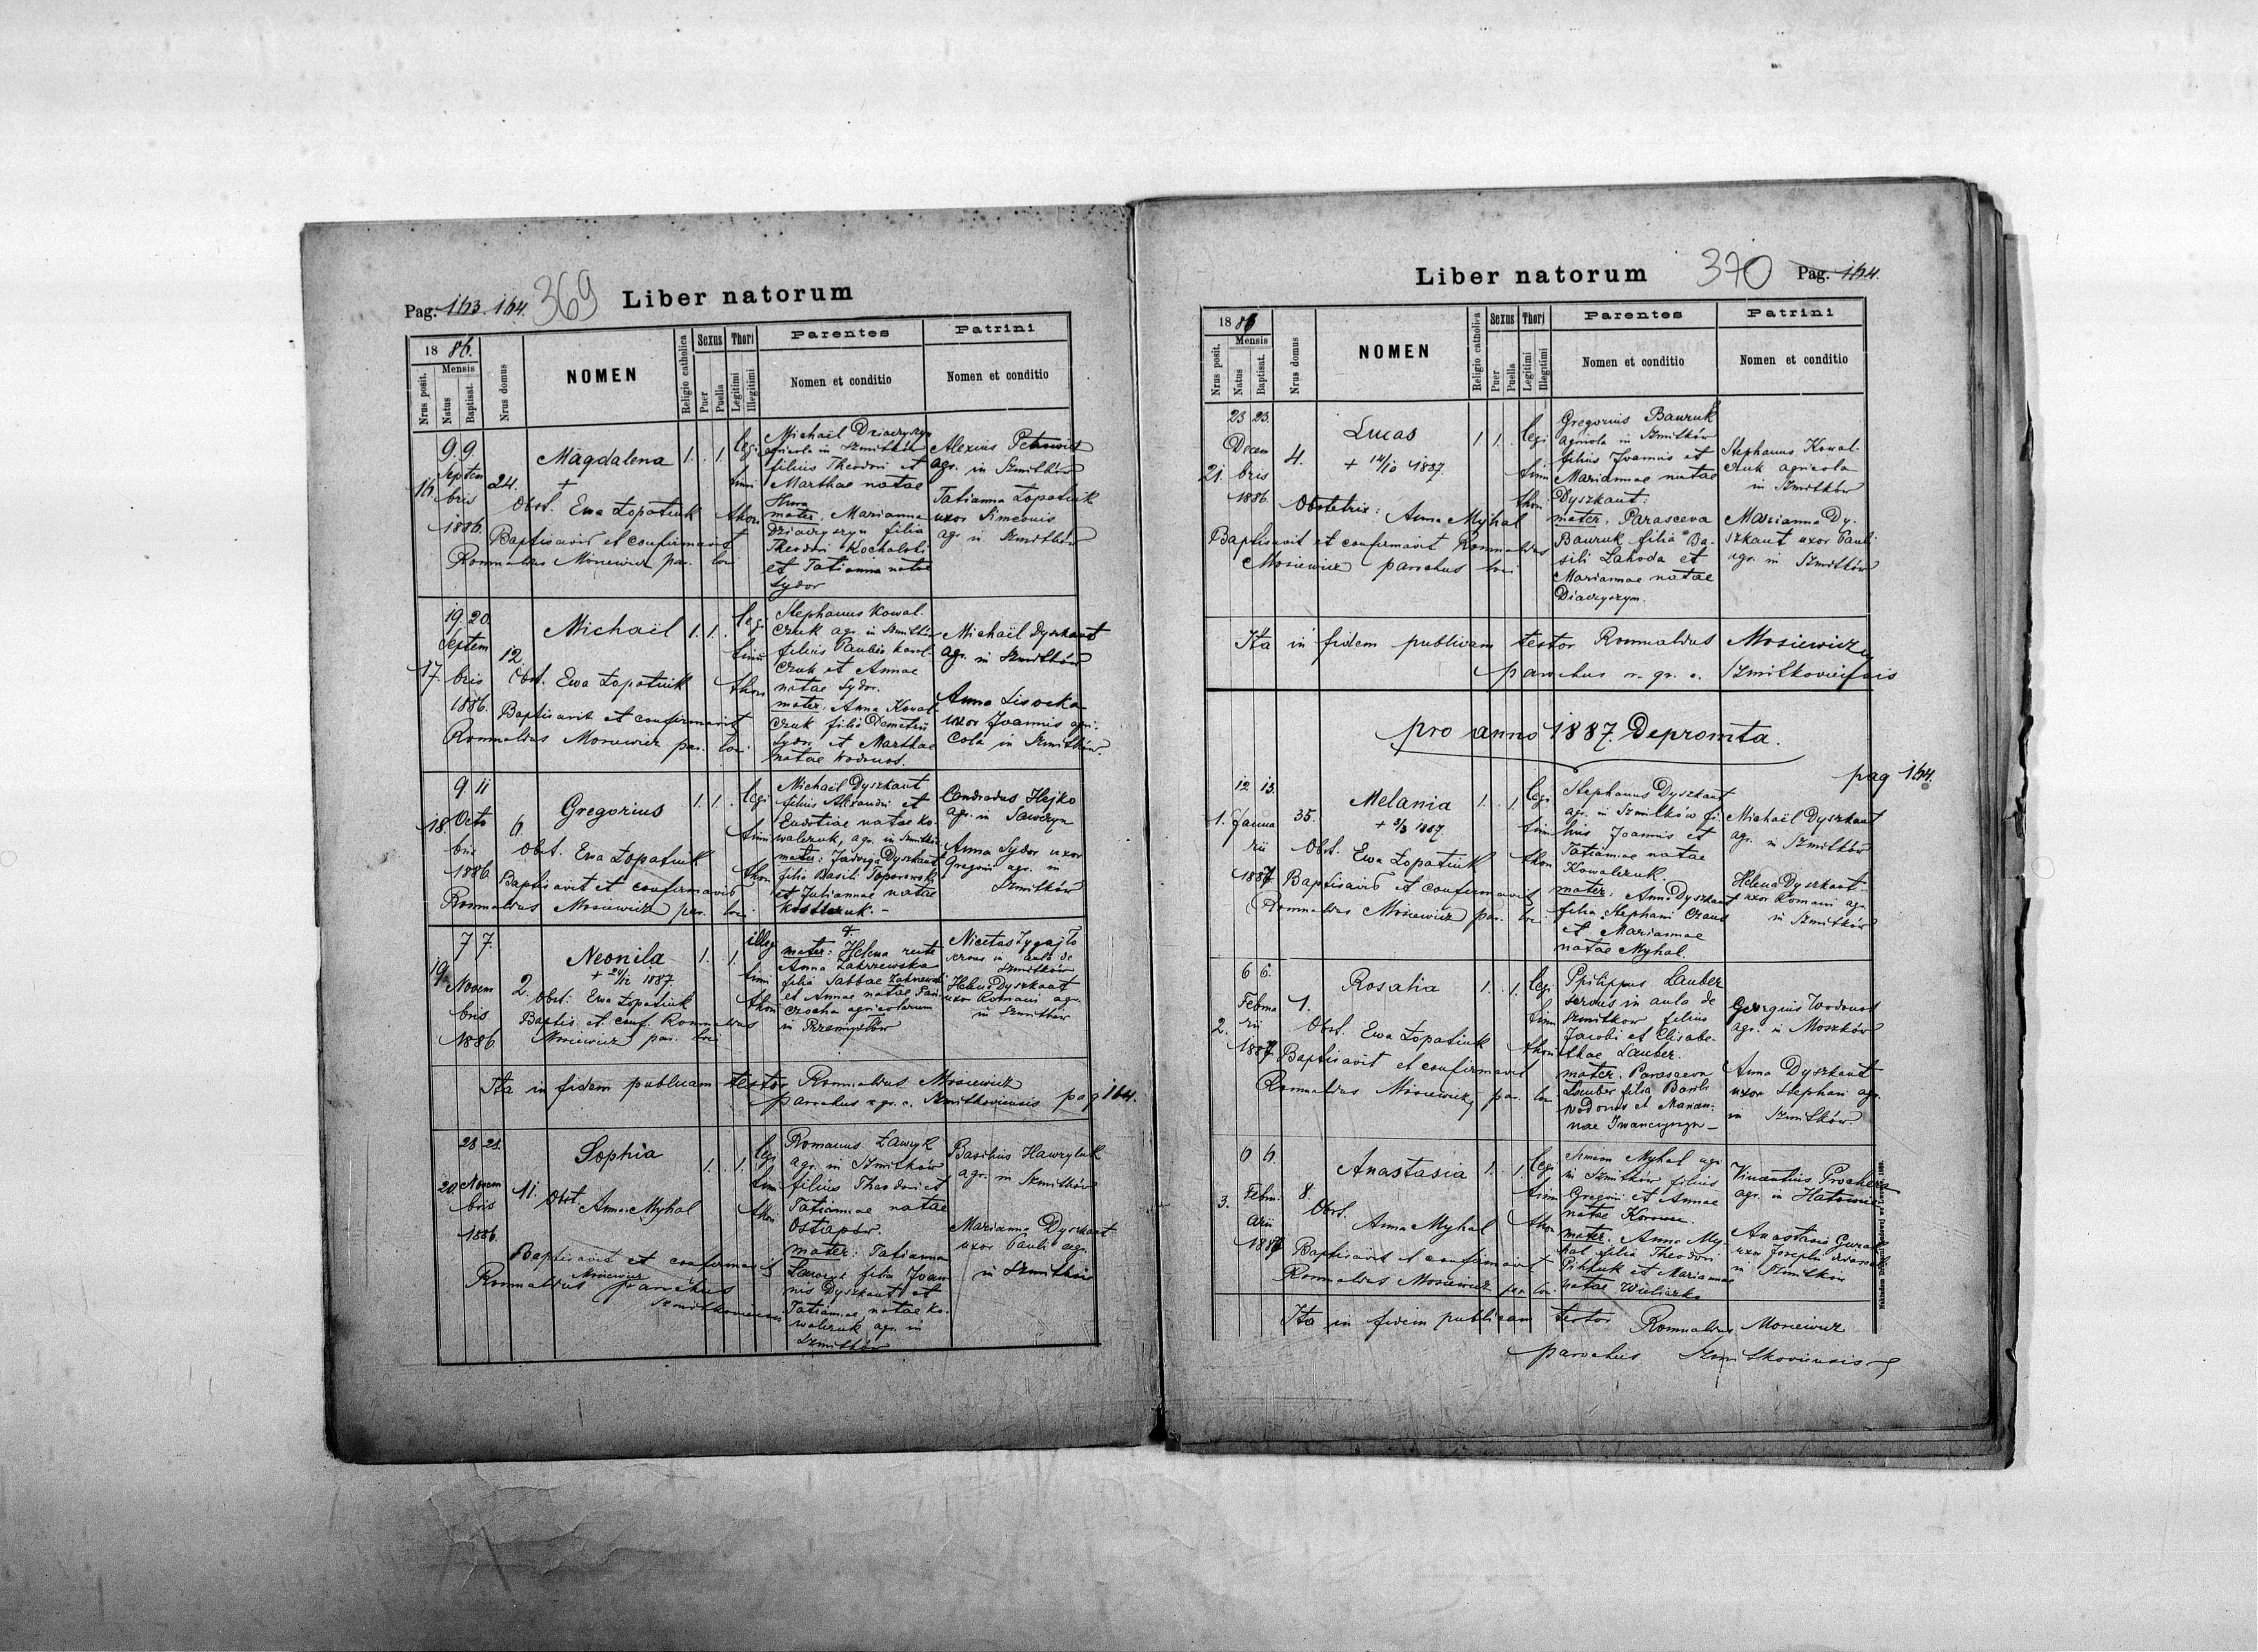 Pag. 163. 164.
369
Liber natorum
18 86.
Nrus posit.
Mensis
Natus
Baptisat.
Nrus domus
NOMEN
Religio catholica
Sexus
Puer
Puella
Thori
Legitimi
Illegitimi
Parentes
Nomen et conditio
Patrini
Nomen et conditio
16.
9. 9.
Septem
bris
1886.
24.
Magdalena
+
Obst. Ewa Łopatiuk
Baptisavit et confirmavit
Romualdus Mosiewicz par. loci
1. . 1.
legi
timi
thori
Michaël Dziadyszyn
agricola in Szmitków
filius Theodori et
Marthae natae
mater. Marianna
Dziadyszyn filia
Theodori
et Tatianna natae
Sydor
Alexius
agr. in Szmitków
Tatianna Łopatiuk
uxor Simeonis
agr. in Szmitków
17.
19. 20.
Septem
bris
1886.
12.
Michaël
Obst. Ewa Łopatiuk
Baptisavit et confirmavit
Romualdus Mosiewicz par. loci
1. 1. .
legi
timi
thori
Stephanus Kowal-
czuk agr. in Szmitków
filius Pauli Kowal-
czuk et Annae
natae Sydor.
mater. Anna Kowal-
czuk filia Demetrii
Sydor et Marthae
natae Wodonos.
Michaël Dyszkant
agr. in Szmitków
Anna Lisocka
uxor Joannis agri-
cola in Szmitków.
18.
9 11
Octo
bris
1886
6
Gregorius
Obst. Ewa Łopatiuk
Baptisavit et confirmavit
Romualdus Mosiewicz par. loci
1. 1. .
legi
timi
thori
Michaël Dyszkant
filius Alexandri et
Eudotiae natae Ko-
walczuk, agr. in Szmitków
mater: Jadwiga Dyszkant
filia Basilii
et Juliannae natae
Condradus Hejko
agr. in Sawczyn
Anna Sydor uxor
Gregorii agr. in
Szmitków
19.
7 7.
Novem
bris
1886
2.
Neonila
+ 1887.
Obst: Ewa Łopatiuk
Baptis. et. conf. Romualdus
Mosiewicz par. loci
1. . 1.
illeg
timi
thori
mater: Helena recte
Anna Zakrzewska
filia Sabbae Zakrzewski
et Annae natae
agricolarum
in Przemysłów
Nicetas
servus in aula de
Szmitków
Helena Dyszkant
uxor Romani agr.
in Szmitków
Ita in fidem publicam testor Romualdus Mosiewicz
parochus r. gr. c. Szmitkoviensis pag 164.
20.
28 28.
Novem
bris
1886.
11.
Sophia
Obst. Anna Myhal
Baptisavit et confirmavit
Romualdus Mosiewicz parochus
Szmitkoviensis
1. . 1.
legi
timi
thori
Romanus Ławryk
agr. in Szmitków
filius Theodori et
Tatiannae natae
Ostapów.
mater: Tatianna
filia Joan-
nis Dyszkant et
Tatiannae natae Ko-
walczuk agr. in
Szmitków
Basilius Hawryluk
agr. in Szmitków
Marianna Dyszkant
uxor Pauli agr.
in Szmitków
Liber natorum
370
Pag. 164.
18 86
Nrus posit.
Mensis
Natus
Baptisat.
Nrus domus
NOMEN
Religio catholica
Sexus
Puer
Puella
Thori
Legitimi
Illegitimi
Parentes
Nomen et conditio
Patrini
Nomen et conditio
21.
23 23.
Decem
bris
1886.
4.
Lucas
+ 14/10 1887
Obstetrix: Anna Myhal
Baptisavit et confirmavit Romualdus
Mosiewicz parochus loci
1. 1. .
legi
timi
thori
Gregorius Bauruk
agricola in Szmitków
filius Joannis et
Mariannae natae
Dyszkant:
mater. Parasceva
Bauruk filia Ba-
silii Lahoda et
Mariannae natae
Diadyszyn.
Stephanus Kowal-
czuk agricola
in Szmitków
Marianna Dy-
szkant uxor Pauli
agr. in Szmitków
Ita in fidem publicam testor Romualdus Mosiewicz
parochus r. gr. c. Szmitkoviensis
pro anno 1887. Depromta.
pag 164.
1.
12 13.
Janua
rii
1887
35.
Melania
+ 3/3 1887
Obst. Ewa Łopatiuk
Baptisavit et confirmavit
Romualdus Mosiewicz par. loci
1. . 1.
legi
timi
thori
Stephanus Dyszkant
agr. in Szmitków fi-
lius Joannis et
Tatiannae natae
Kowalczuk.
mater: Anna Dyszkant
filia Stephani Czaus
et Mariannae
natae Myhal.
Michaël Dyszkant
agr. in Szmitków
Helena Dyszkant
uxor Romani agr.
in Szmitków
2.
6 6.
Februa
rii
1887
1.
Rosalia
Obst. Ewa Łopatiuk
Baptisavit et confirmavit
Romualdus Mosiewicz par. loci
1. . 1.
legi
timi
thori
Philippus Lauber
servus in aula de
Szmitkow filius
Jacobi et Elisabe-
thae Lauber.
mater. Parasceva
Lauber filia Basili
Wodonos et Marian-
nae Iwanczyszyn
Georgius Wodonos
agr. in Moszków
Anna Dyszkant
uxor Stephani agr.
in Szmitków
3.
6 6.
Febru-
arii
1887
8.
Anastasia
Obst. Anna Myhal
Baptisavit et confirmavit
Romualdus Mosiewicz par. loci.
1. . 1.
legi
timi
thori
Simeon Myhal agr
in Szmitków filius
Gregorii et Annae
natae
mater. Anna My-
hal filia Theodori
et Mariannae
natae Wieliczko
Vincentius
agr. in
Anastasia
uxor Josephi
in Szmitków
Ita in fidem publicam testor Romualdus Mosiewicz
parochus Szmitkoviensis